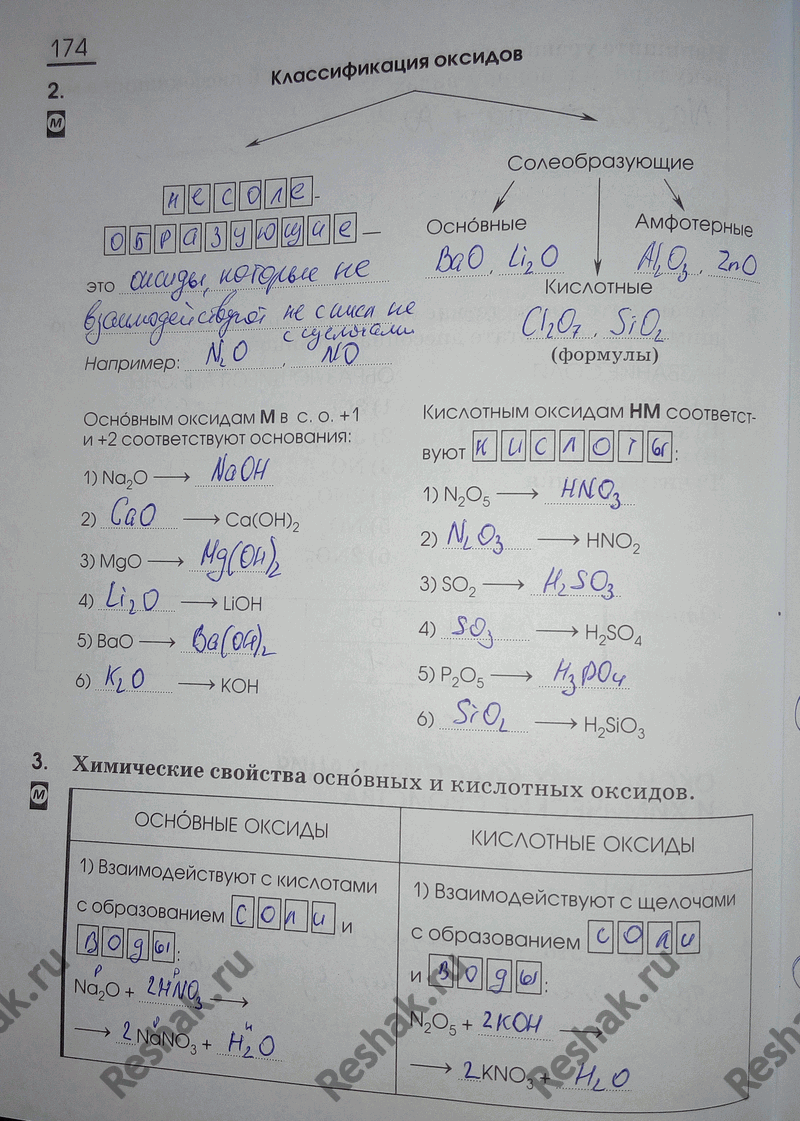 174
Классификация оксидов
2.
М
несоле-
образующие —
это оксиды, которые не
взаимодействуют не с кисл не
с щелочами
Например: N₂O, NO
Солеобразующие
Оснóвные
BaO, Li₂O
Амфотерные
Al₂O₃, ZnO
Кислотные
Cl₂O₇, SiO₂
(формулы)
Оснóвным оксидам М в с. о. +1
и +2 соответствуют основания:
1) Na₂O ⟶ NaOH
2) CaO ⟶ Ca(OH)₂
3) MgO ⟶ Mg(OH)₂
4) Li₂O ⟶ LiOH
5) BaO ⟶ Ba(OH)₂
6) K₂O ⟶ KOH
Кислотным оксидам НМ соответст-
вуют кислоты:
1) N₂O₅ ⟶ HNO₃
2) N₂O₃ ⟶ HNO₂
3) SO₂ ⟶ H₂SO₃
4) SO₃ ⟶ H₂SO₄
5) P₂O₅ ⟶ H₃PO₄
6) SiO₂ ⟶ H₂SiO₃
3. Химические свойства оснóвных и кислотных оксидов.
М
ОСНÓВНЫЕ ОКСИДЫ
1) Взаимодействуют с кислотами
с образованием соли и
воды:
р р
Na₂O + 2HNO₃ ⟶
н н
⟶ 2NaNO₃ + H₂O
КИСЛОТНЫЕ ОКСИДЫ
1) Взаимодействуют с щелочами
с образованием соли
и воды:
N₂O₅ + 2KOH ⟶
⟶ 2KNO₃ + H₂O
Reshak.ru
Reshak.ru
Reshak.ru
Reshak.ru